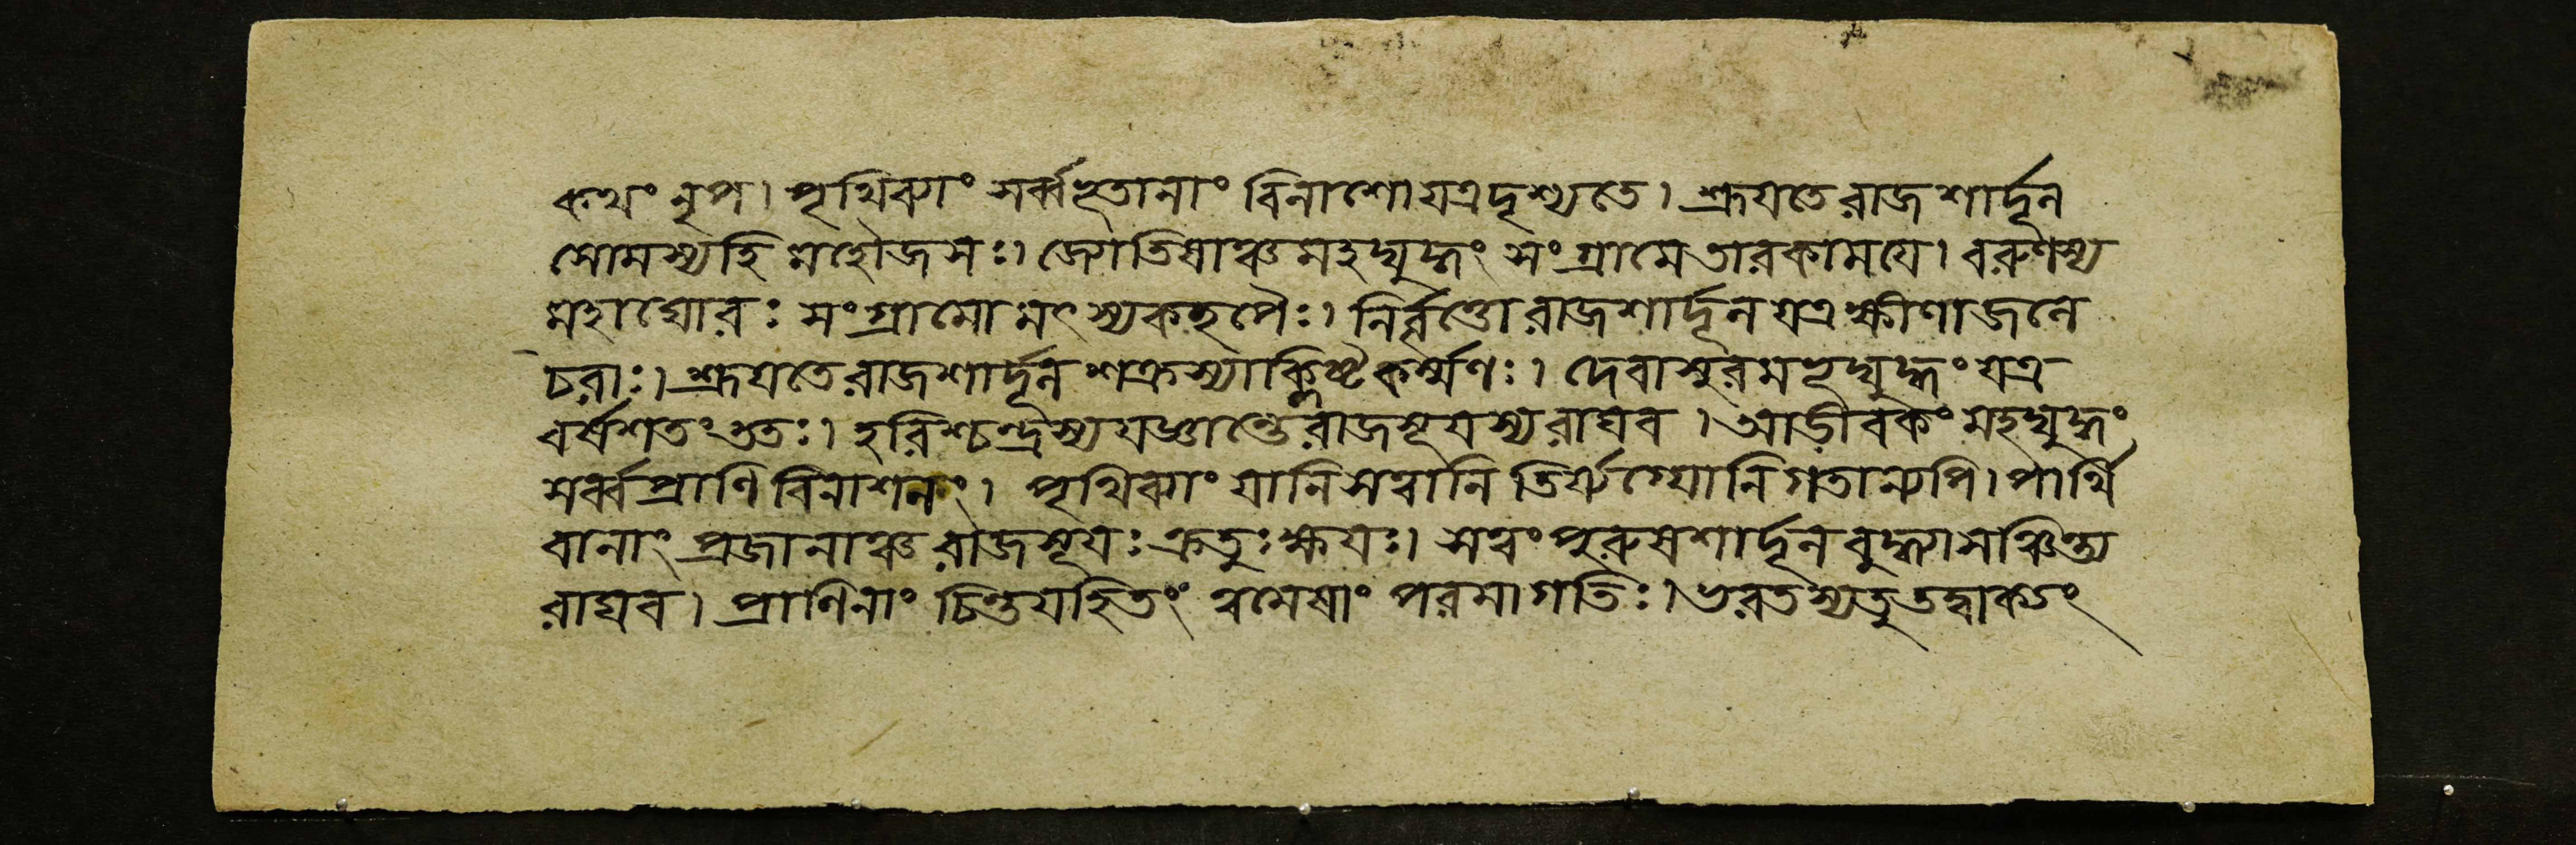 কথং নৃপ। পৃথিব্যাং সর্ব্বভূতানাং বিনাশো যত্র দৃশ্যতে। শ্রূযতে রাজশার্দূল
সোমস্য হি মহৌজসঃ। জ্যোতিষাঞ্চ মহদ্যুদ্ধং সংগ্রামে তারকামযে। বরুণস্য
মহাঘোরঃ সংগ্রামো মৎস্যকচ্ছপৈঃ। নির্বৃত্তো রাজশার্দূল যত্র ক্ষীণা জলে
চরাঃ। শ্রূযতে রাজশার্দূল শক্রস্যাক্লিষ্টকর্ম্মণঃ। দেবাসুরমভূদ্যুদ্ধং যত্র
বর্ষশতং ততঃ। হরিশ্চন্দ্রস্য যজ্ঞান্তে রাজসূযস্য রাঘব। আডীবকং মহদ্যুদ্ধং
সর্ব্বপ্রাণিবিনাশনং। পৃথিব্যাং যানি সত্বানি তির্য্যগ্যোনিগতান্যপি। পার্থি
বানাং প্রজানাঞ্চ রাজসূযঃ ক্রতুঃ ক্ষযঃ। সত্বং পুরুষশার্দূল বুদ্ধ্যা সঞ্চিন্ত্য
রাঘব। প্রাণিনাং চিন্তয হিতং ত্বমেষাং পরমা গতিঃ। ভরতস্য তু তদ্বাক্যং